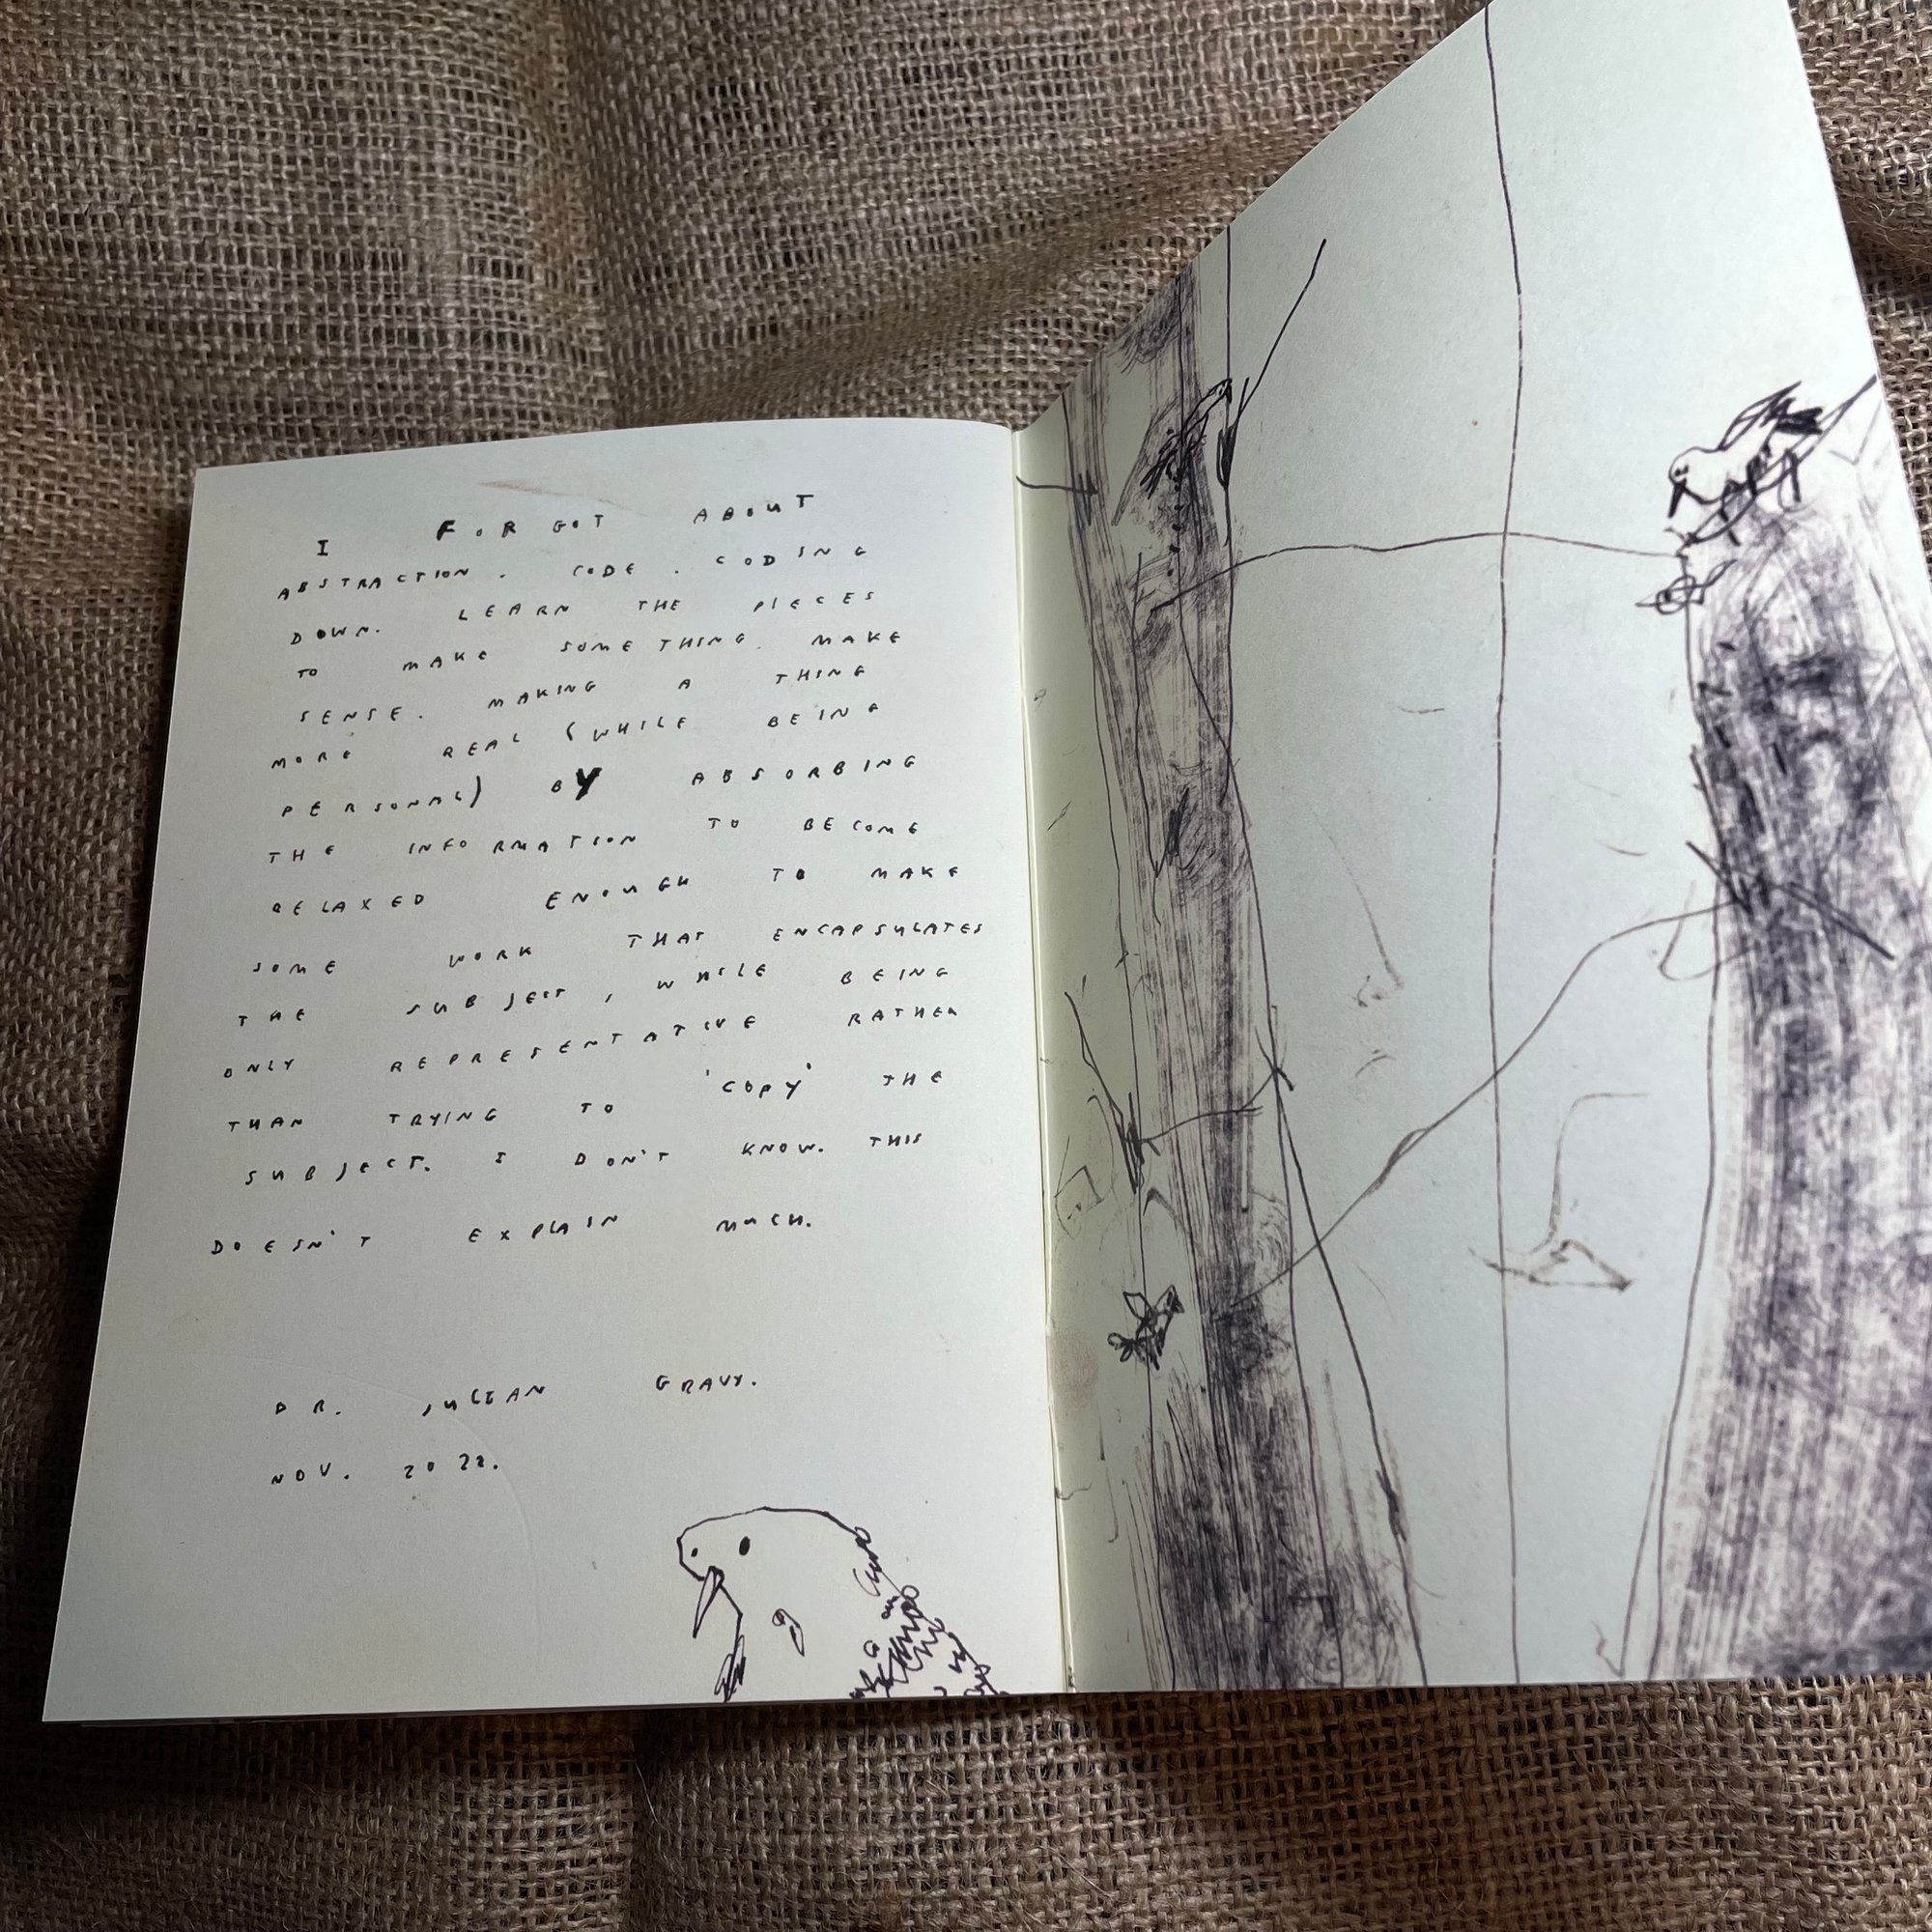 I FORGOT ABOUT
ABSTRACTION. CODE. CODING
DOWN. LEARN THE PIECES
TO MAKE SOMETHING. MAKE
SENSE. MAKING A THING
MORE REAL (WHILE BEING
PERSONAL) BY ABSORBING
THE INFORMATION TO BECOME
RELAXED ENOUGH TO MAKE
SOME WORK THAT ENCAPSULATES
THE SUBJECT, WHILE BEING
ONLY REPRESENTATIVE RATHER
THAN TRYING TO 'COPY' THE
SUBJECT. I DON'T KNOW. THIS
DOESN'T EXPLAIN MUCH.
DR. JULIAN GRAVY.
NOV. 2022.